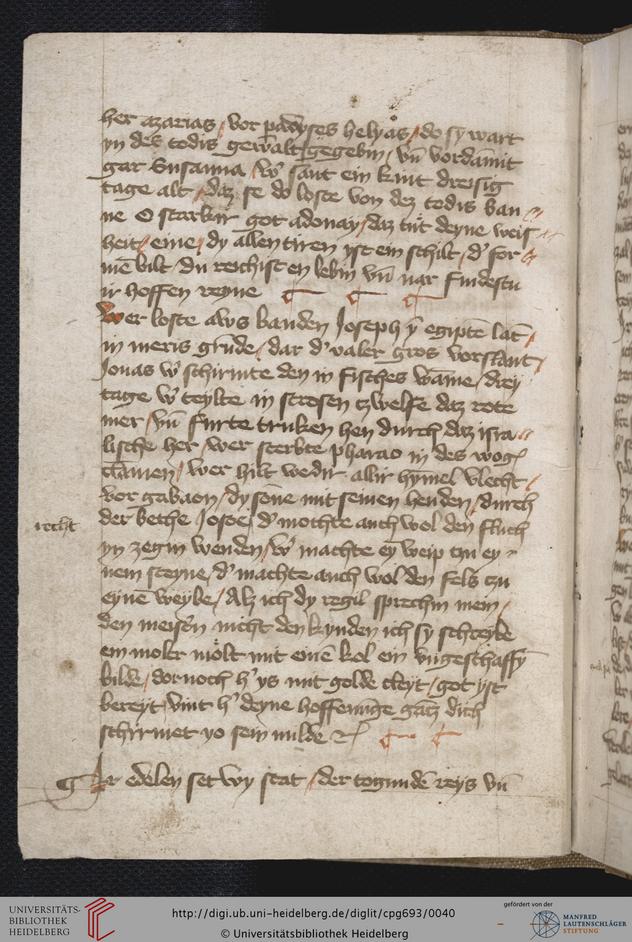 her azarias / vor padyses helyas / do sy wart
yn des todis gewalt gegebin / vn̄ vordāmit
gar Susanna / w' sant ein kint dreisig
tage alt / daz se do loste von dez todis ban
ne O starkir got adonay / daz tüt deyne weis
heit / eine / dy allen tiren yst ein schilt / d' for
mē bilt du reichist en lebin vn̄ nar findestu
ir hoffen reyne
Wer loste aws banden Joseph ȳ egiptē lāt /
in meris grūde / dar d' valer gros vorslant /
Jonas w' schirmte den in fisches wāme / drey
tage w' teylte in strosen czwelfe daz rote
mer / vn̄ furte truken hen durch daz isra
lische her / wer sterbte pharao in des wog
clāmen / wer hilt wedir allir hȳmel vlecht /
vor gabaon / dy sōne mit seinen henden / durch
der bethe Josoe / d' mochte auch wol den fluch
recht
yn zegin wenden / w' machte eȳ weip czu ey
nem steyne / d' machte auch wol den fels czu
eynē weybe / Alz ich dy regil sprechin mein /
den meist'n nicht den kynden ich sy schreybe
ein moler molt mit einē kol ein vngeschaffȳ
bilde / dornoch h' ys mit golde cleyt / got yst
bereyt / vint h' deyne hoffenuge gātz dich
schirmet yo sein milde
Ar edelen set wy stat / der togundē reys vn̄
UNIVERSITÄTS-
BIBLIOTHEK
HEIDELBERG
http://digi.ub.uni-heidelberg.de/diglit/cpg693/0040
© Universitätsbibliothek Heidelberg
gefördert von der
MANFRED
LAUTENSCHLÄGER
STIFTUNG